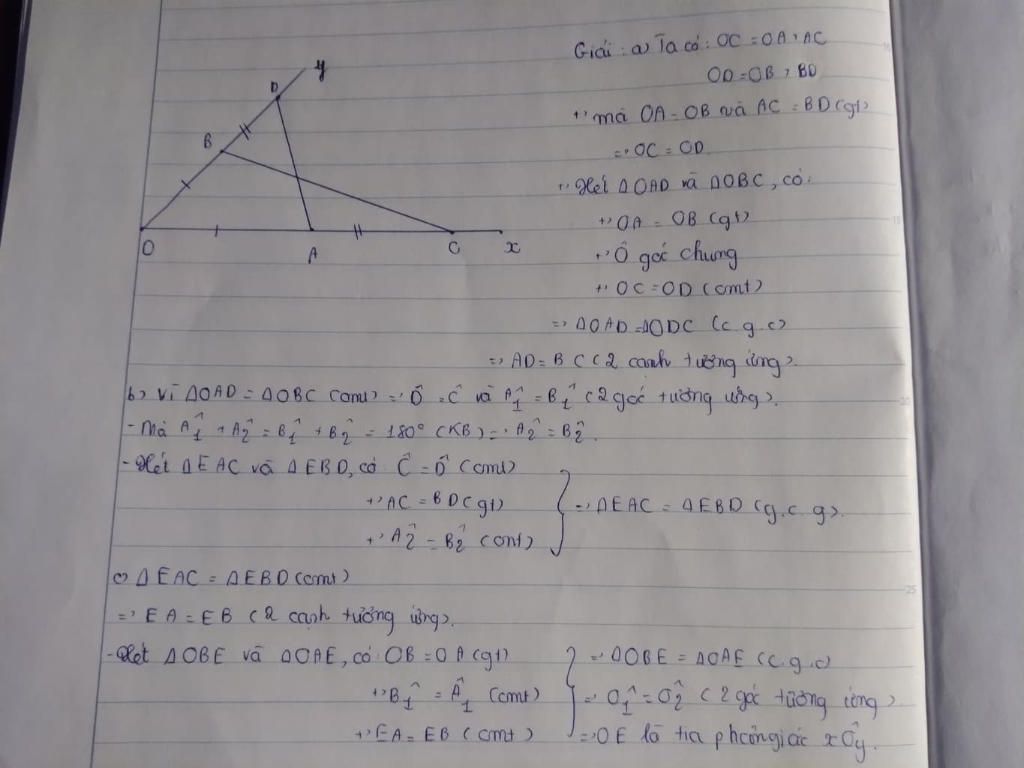 y
D
B
O
A
C
x
Giải: a, Ta có: OC = OA + AC
OD = OB + BD
+, mà OA = OB và AC = BD (gt)
=> OC = OD
+, Xét ΔOAD và ΔOBC, có:
+, OA = OB (gt)
+, Ô góc chung
+, OC = OD (cmt)
=> ΔOAD = ΔODC (c.g.c)
=> AD = BC (2 cạnh tương ứng).
b, Vì ΔOAD = ΔOBC (cmt) => D̂ = Ĉ và Â₁ = B̂₁ (2 góc tương ứng).
- Mà Â₁ + Â₂ = B̂₁ + B̂₂ = 180° (KB) => Â₂ = B̂₂.
- Xét ΔEAC và ΔEBD, có Ĉ = D̂ (cmt)
+, AC = BD (gt) => ΔEAC = ΔEBD (g.c.g).
+, Â₂ = B̂₂ (cmt)
c, ΔEAC = ΔEBD (cmt)
=> EA = EB (2 cạnh tương ứng).
- Xét ΔOBE và ΔOAE, có OB = OA (gt) => ΔOBE = ΔOAE (c.g.c)
+, B̂₁ = Â₁ (cmt) => Ô₁ = Ô₂ (2 góc tương ứng)
+, EA = EB (cmt) => OE là tia phân giác xÔy.